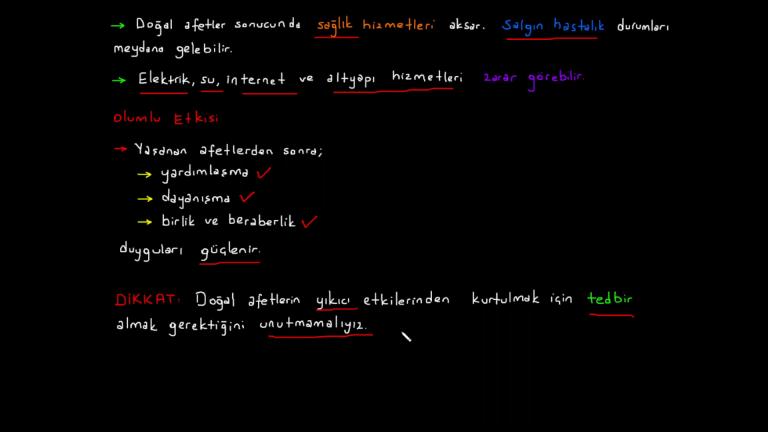 → Doğal afetler sonucunda sağlık hizmetleri aksar. Salgın hastalık durumları
meydana gelebilir.
→ Elektrik, su, internet ve altyapı hizmetleri zarar görebilir.
Olumlu Etkisi
→ Yaşanan afetlerden sonra;
→ yardımlaşma ✓
→ dayanışma ✓
→ birlik ve beraberlik ✓
duyguları güçlenir.
DİKKAT: Doğal afetlerin yıkıcı etkilerinden kurtulmak için tedbir
almak gerektiğini unutmamalıyız.